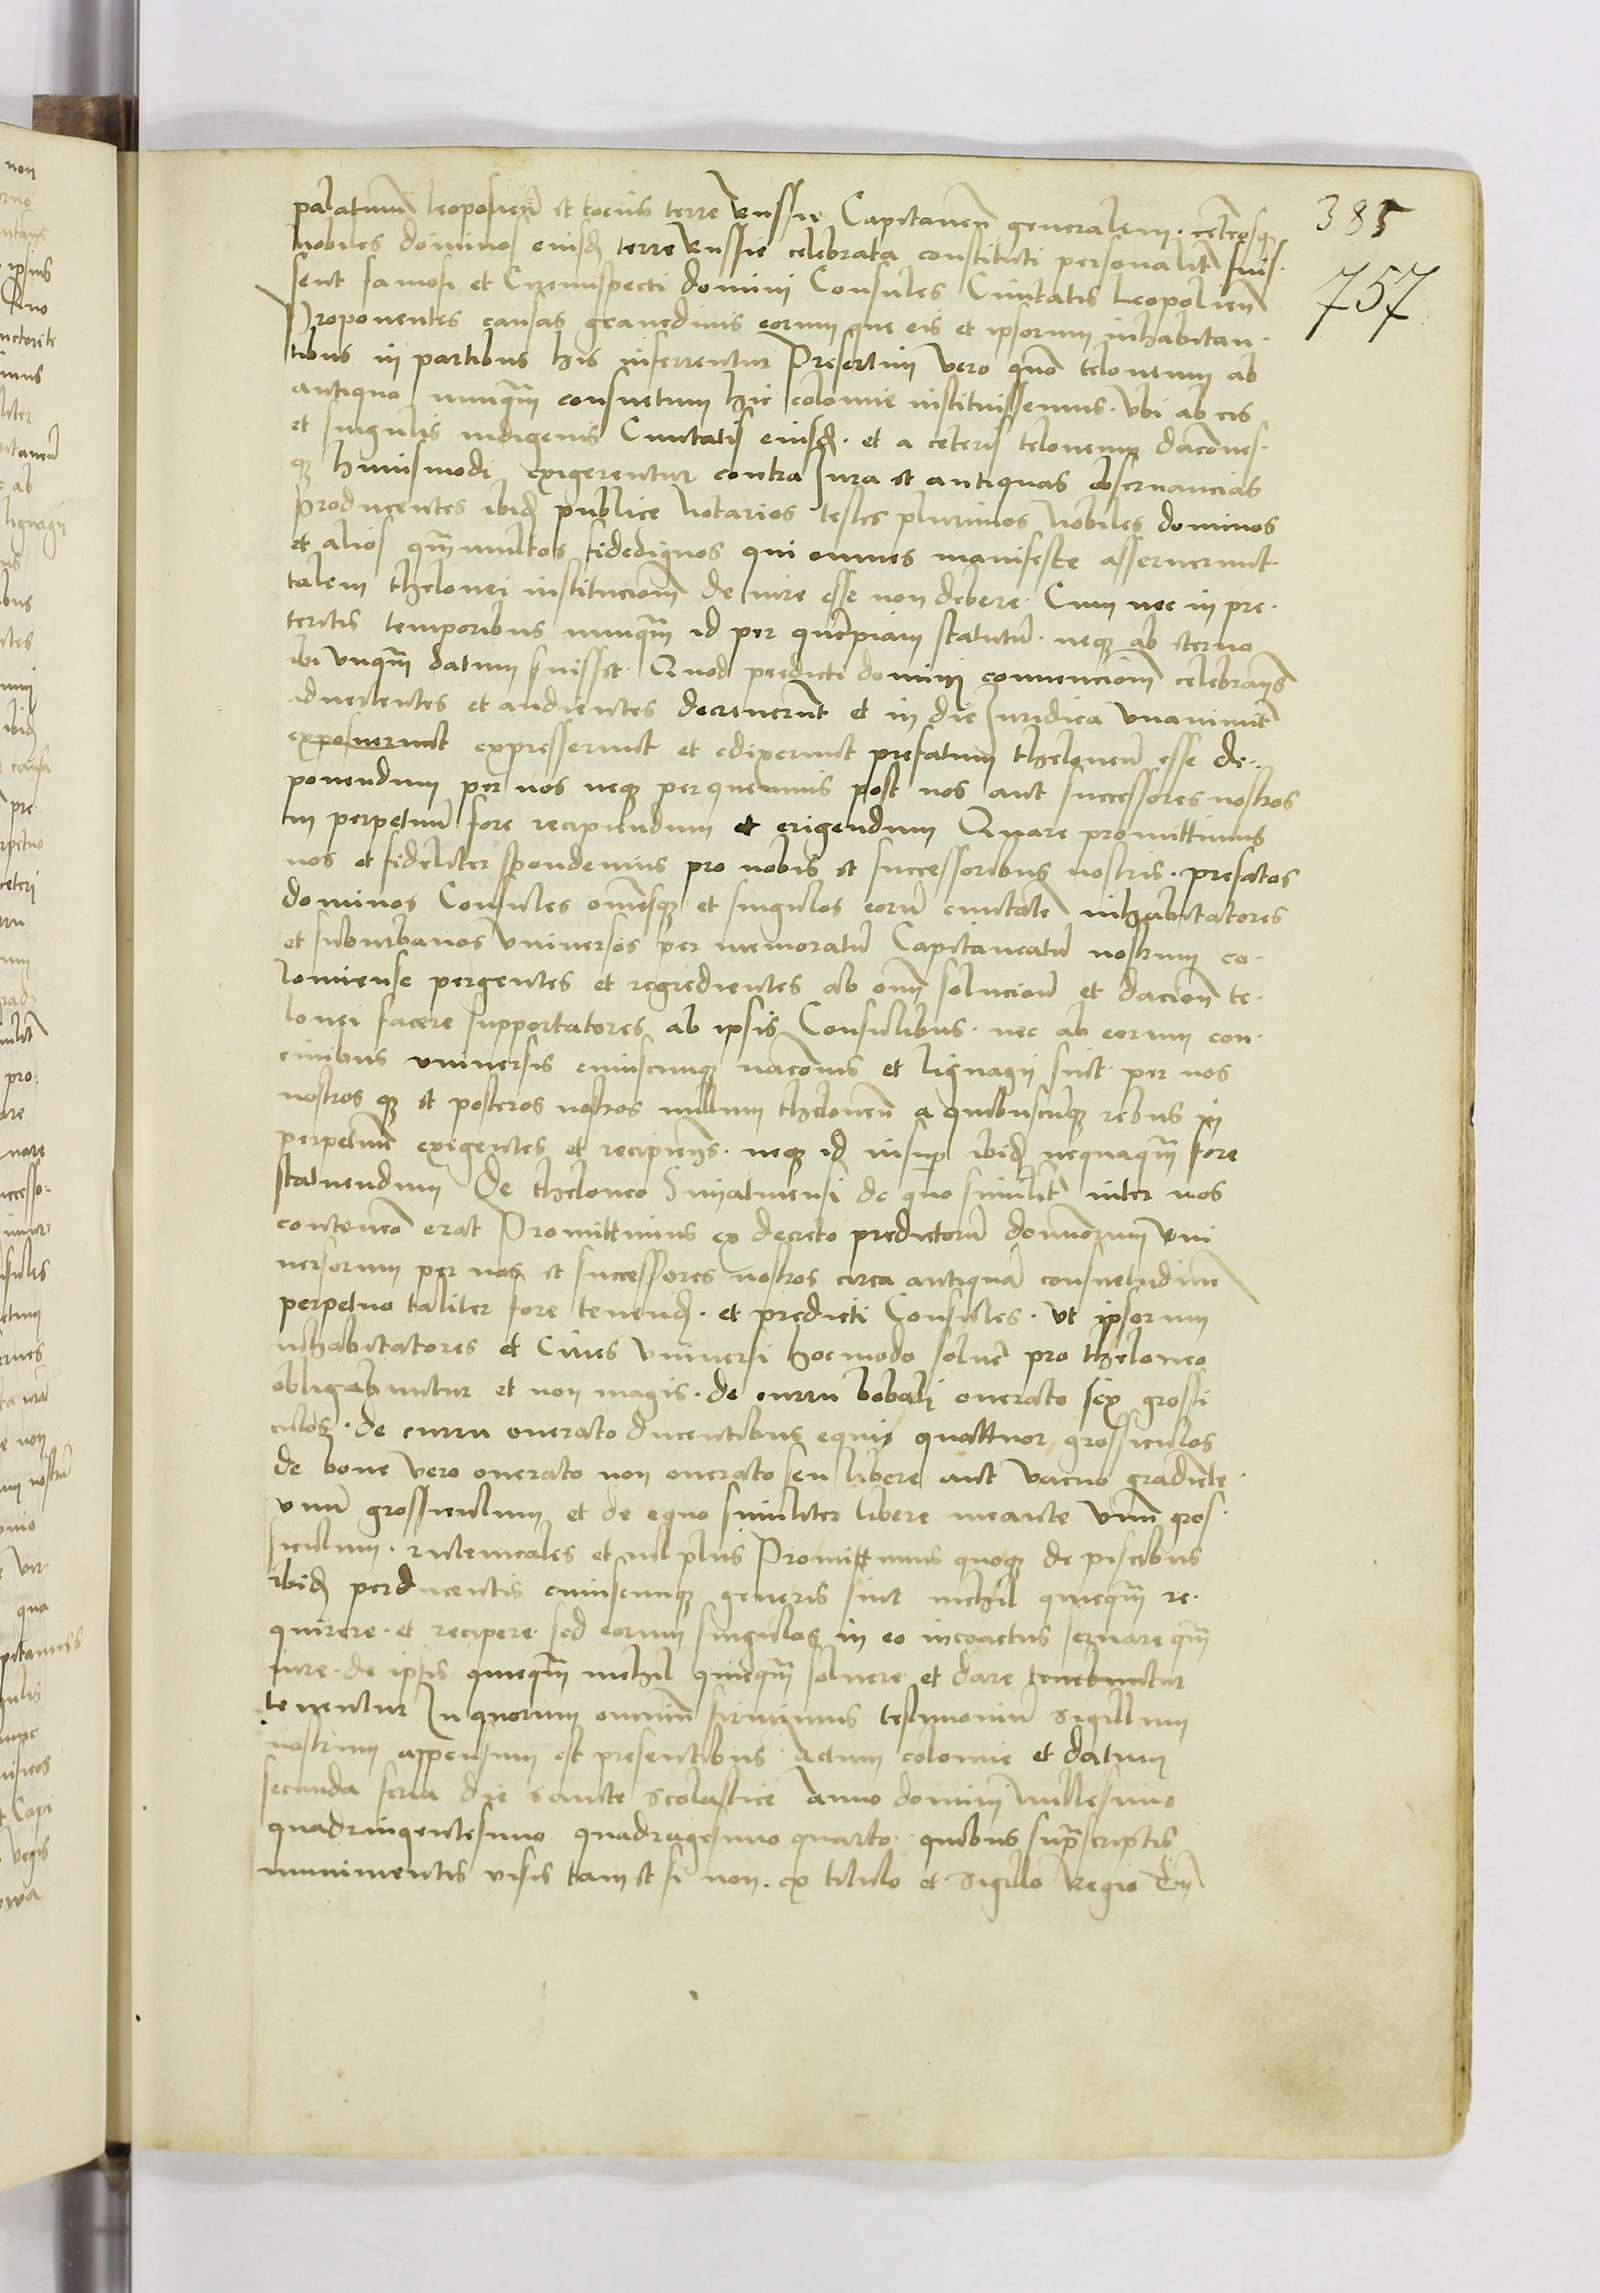 385
757
palatinum leopolien̄ et tocius terre Russie Capitaneū generalem. ceterosq̨
Nobiles dominos eiusd̨ terre Russie celebrata constituti personalit̄ fuis.
sent famosi et Circumspecti domini Consules Ciuitatis Leopolien̄
Proponentes causas grauedinis eorum que eis et ipsorum inhabitan.
tibus in partibus his inferrentur Presertim vero quō teloneum ab
antiquo nunq̄m consuetum hic Colomie instituissemus. Vbi ab eis
et singulis indigenis Ciuitatis eiusd̨. et a ceteris teloneum dac̄ones.
q̨ huiusmodi exigerentur contra Jura et antiquas obseruancias
Producentes ibid̨ publice Notarios testes plurimos Nobiles dominos
et alios q̄mmultos fidedignos qui omnes manifeste asseruerunt.
talem thelonei institucionē de iure esse non debere. Cum nec in pre.
teritis temporibus nunq̄m id per quēpiam statutū. neq̨ ab eterno
ibi vnq̄m datum fuisset. Quod predicti domini conuencionē celebran̄s
aduertentes et audientes decreuerūt et in die Juridica vnanimit̄
exposuerunt expresserunt et edixerunt prefatum theloneū esse de.
ponendum per nos neq̨ per quemuis post nos aut successores nostros
in perpetuū fore recipiendum et erigendum Quare promittimus
nos et fideliter spondemus pro nobis et successoribus nostris. prefatos
dominos Consules omēsq̨ et singulos eorū ciuitatē inhabitatores
et suburbanos vniuersos per memoratū Capitaneatū nostrum co.
lomiense pergentes et regredientes ab omī solucionē et dacionē te.
lonei facere supportatores ab ipsis Consulibus. nec ab eorum con.
ciuibus vniuersis cuiuscumq̨ nac̄onis et lignagii sint per nos
nostros q̨ et posteros nostros nullum theloneū a quibuscūq̨ rebus in
perpetuū exigentes et recipien̄s. neq̨ id insup ibid̨ nequaq̄m fore
statuendum De theloneo Sniatinensi de quo similit̄ inter nos
contenc̄o erat Promittimus ex decreto predictorū dominorum vni
uersorum per nos et successores nostros circa antiquā consuetudinē
perpetuo taliter fore tenend̨. et predicti Consules. vt ipsorum
inhabitatores et Ciues vniuersi hoc modo soluē pro theloneo
obligabuntur et non magis. de curru bobali onerato sex grossi
culos. de curru onerato ducentibus equis quattuor grossiculos
de boue vero onerato non onerato seu libere aut vacuo gradiēte.
vnū grossiculum et de equo similiter libere meante vnū gros.
siculum. rutenicales et nil plus Promittimus quoq̨ de piscibus
ibid̨ perducentis cuiuscumq̨ generis sint nichil quicq̄m re.
quirere. et recipere sed eorum singulos in eo incoactus seruare q̄m
iure. de ipsis quicq̄m nichil quicq̄m soluere et dare tenebuntur
tenentur In quorum omniū firmimus testimoniū Sigillum
nostrum appensum est presentibus. Actum colomie et datum
secunda feria die sancte Scolastice Anno domini millesimo
quadringentesimo quadragesimo quarto. quibus sup̄scriptis
munimentis visis tam et si non. ex titulo et Sigillo Regio